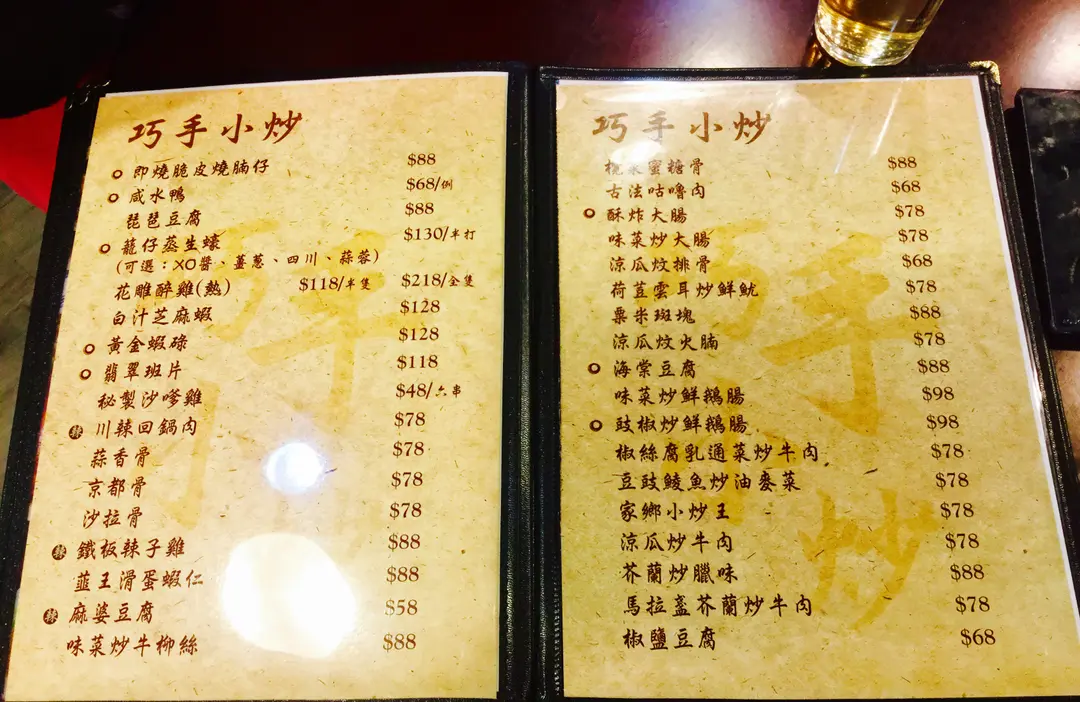 巧手小炒
即燒脆皮燒腩仔 $88
咸水鴨 $68/例
琵琶豆腐 $88
籠仔蒸生蠔 $130/半打
(可選：XO醬、薑蔥、四川、蒜蓉)
花雕醉雞(熱) $118/半隻 $218/全隻
白汁芝麻蝦 $128
黃金蝦碌 $128
翡翠班片 $118
秘製沙嗲雞 $48/六串
辣 川辣回鍋肉 $78
蒜香骨 $78
京都骨 $78
沙拉骨 $78
辣 鐵板辣子雞 $88
韮王滑蛋蝦仁 $88
辣 麻婆豆腐 $58
味菜炒牛柳絲 $88
巧手小炒
蜜糖骨 $88
古法咕嚕肉 $68
酥炸大腸 $78
味菜炒大腸 $78
涼瓜炆排骨 $68
荷荳雲耳炒鮮魷 $78
粟米斑塊 $88
涼瓜炆火腩 $78
海棠豆腐 $88
味菜炒鮮鵝腸 $98
豉椒炒鮮鵝腸 $98
椒絲腐乳通菜炒牛肉 $78
豆豉鯪魚炒油麥菜 $78
家鄉小炒王 $78
涼瓜炒牛肉 $78
芥蘭炒臘味 $88
馬拉盞芥蘭炒牛肉 $78
椒鹽豆腐 $68